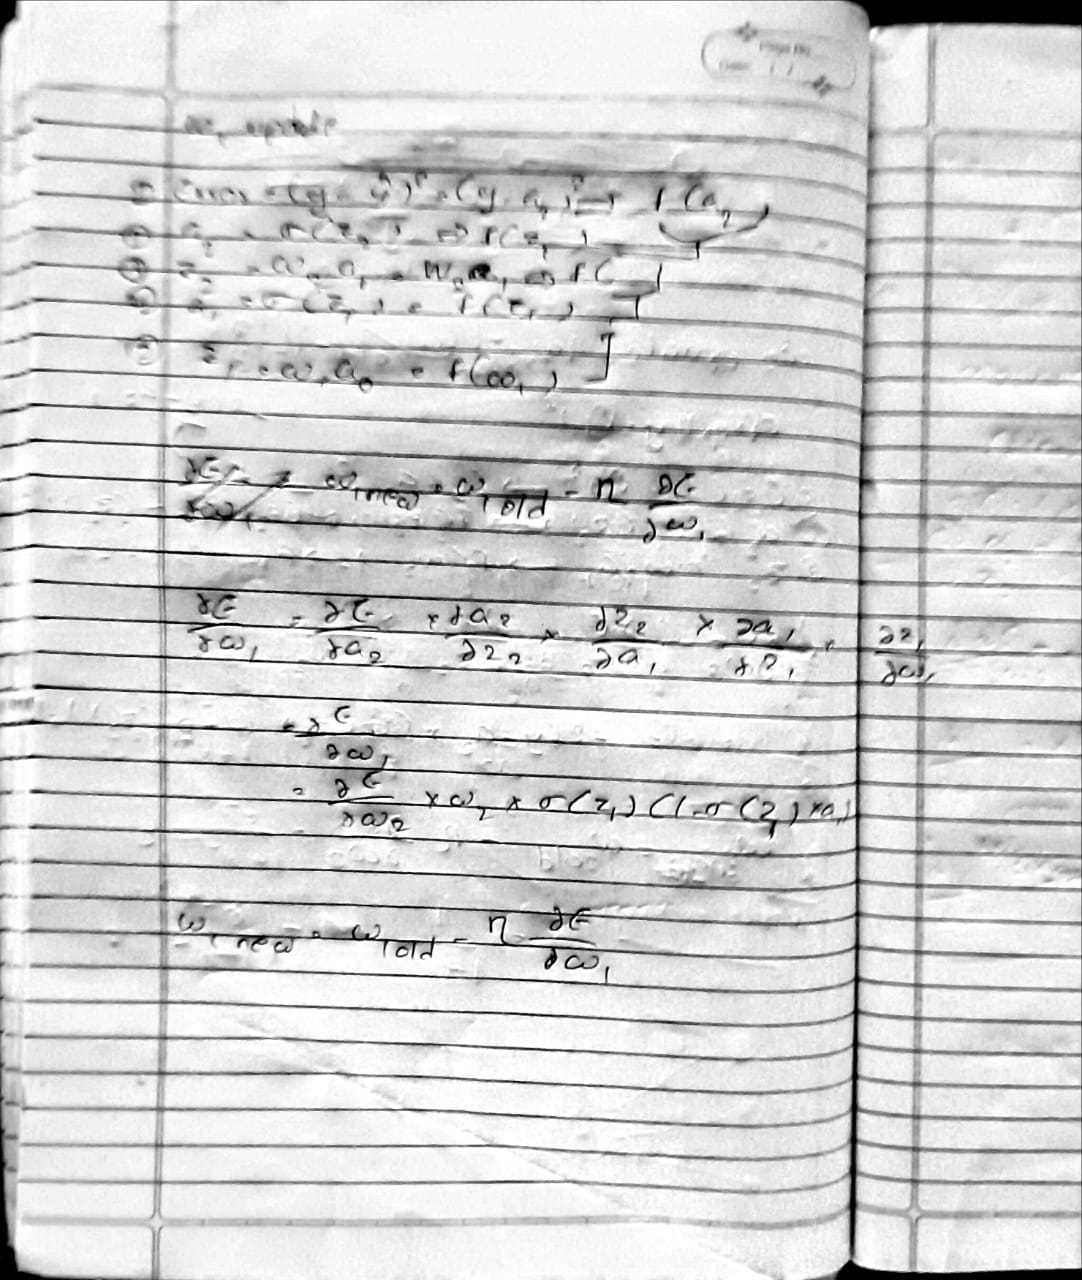 Page No.
Date: / /
w₁ update
① Error = (y - ŷ)² = (y - a₂)² ⇒ f(a₂)
② a₂ = σ(z₂) ⇒ f(z₂)
③ z₂ = ω₂ a₁ = W₂ a₁ ⇒ f(
④ a₁ = σ(z₁) = f(z₁)
⑤ z₁ = ω₁ a₀ = f(ω₁)
ω₁new = ω₁old - η ∂E/∂ω₁
∂E/∂ω₁ = ∂E/∂a₂ × ∂a₂/∂z₂ × ∂z₂/∂a₁ × ∂a₁/∂z₁ × ∂z₁/∂ω₁
= ∂E/∂ω₁
= ∂E/∂ω₂ × ω₂ × σ(z₁) (1-σ(z₁) ×a₁)
ω₁new = ω₁old - η ∂E/∂ω₁